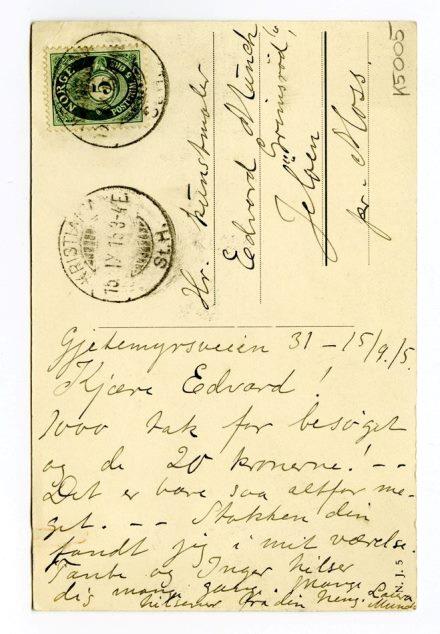 K5005
NORGE
5
POSTFRIM
KRISTIANIA
15 IX 15 3-4 E
St.H.
Hr. Kunstmaler
Edvard Munch
"Grimsrød",
Jeløen
pr. Moss.
Gjetemyrsveien 31 – 15/9/5.
Kjære Edvard!
1000 tak for besøget
og de 20 kronerne! – –
Det er bare saa altfor me-
get. – – Stokken din
fandt jeg i mit værelse.
Tante og Inger hilser
dig mange gange. Mange
hilsener fra din heng. Laura
Munch
N. J. 5